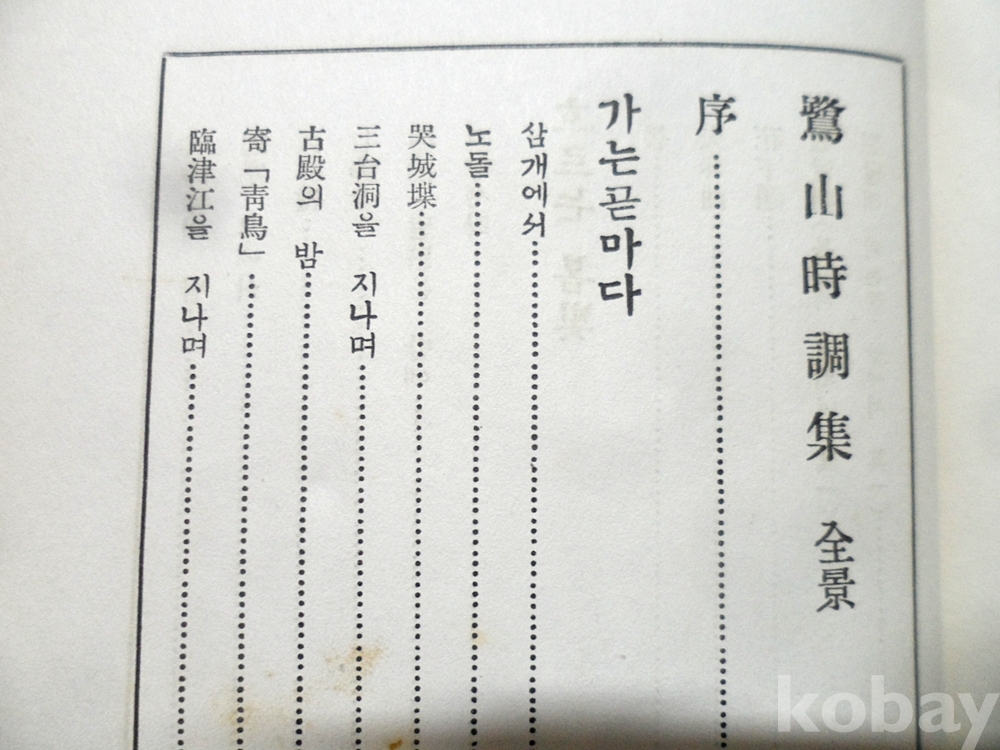 鷺山時調集 全景
序
가는곧마다
삼개에서
노돌
哭城堞
三台洞을 지나며
古殿의 밤
寄「靑鳥」
臨津江을 지나며
kobay